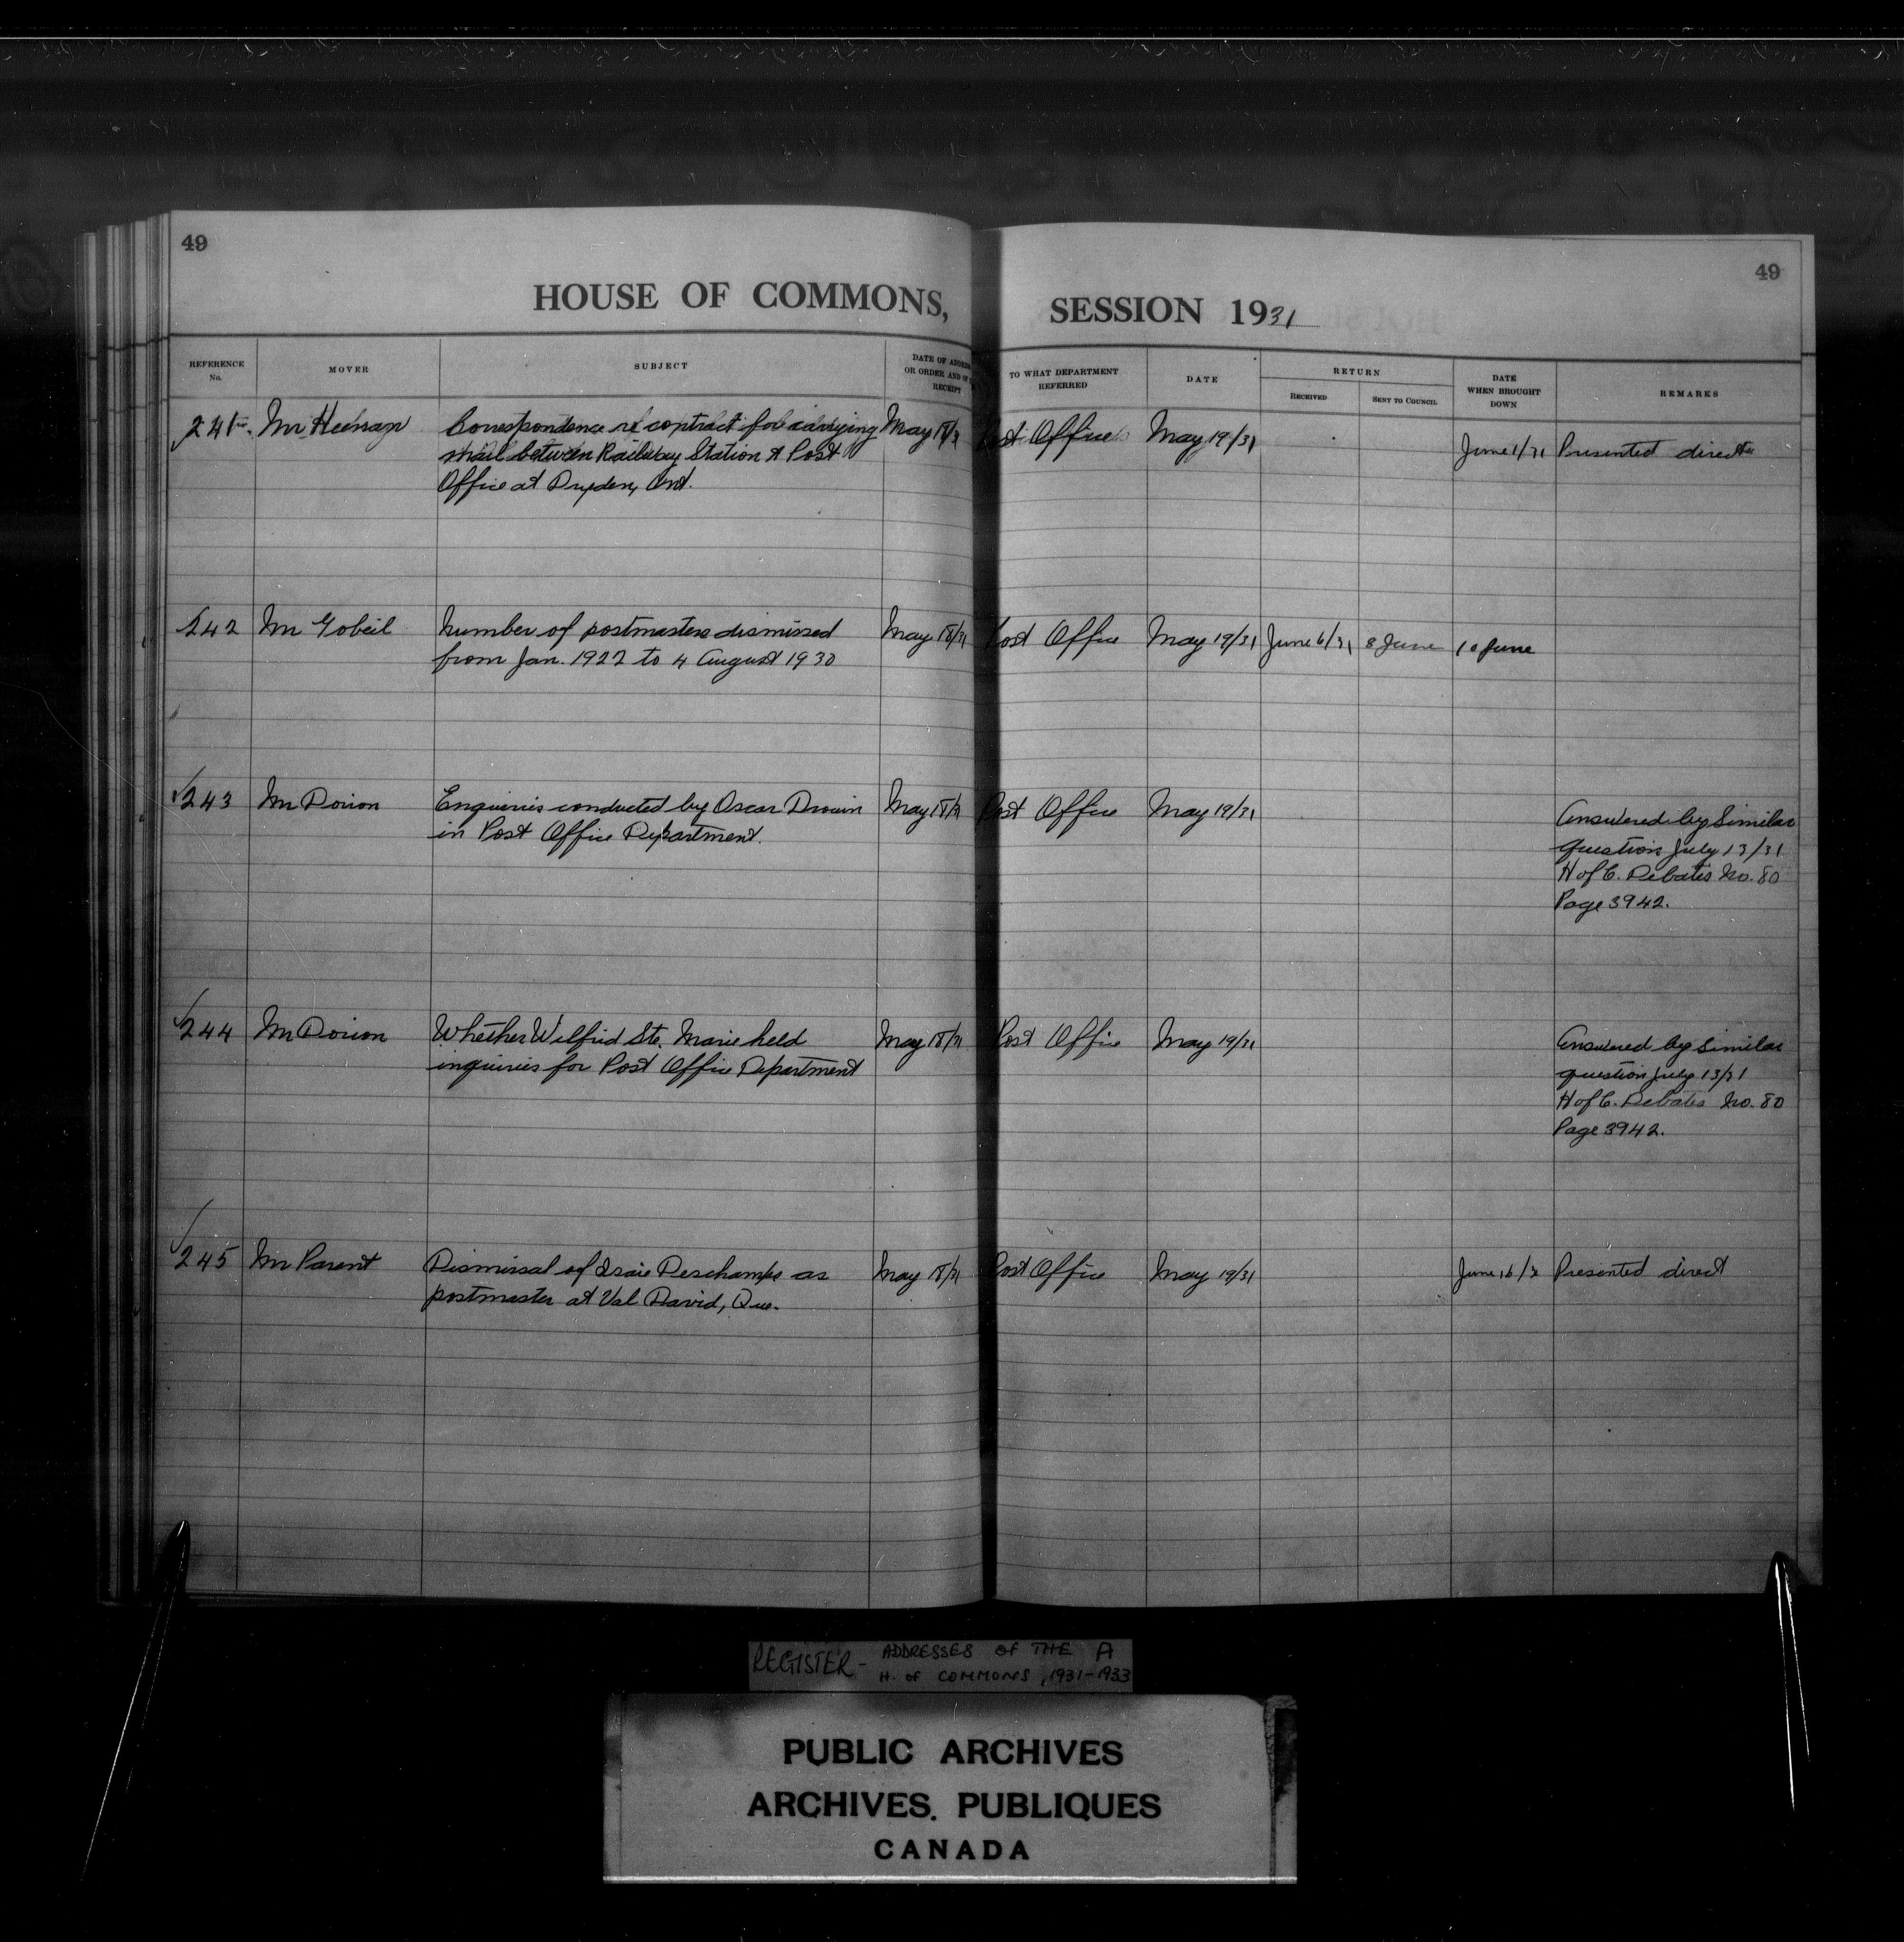 49
49
HOUSE OF COMMONS, SESSION 1931
REFERENCE No.
MOVER
SUBJECT
DATE OF ADDRESS OR ORDER AND OF RECEIPT
TO WHAT DEPARTMENT REFERRED
DATE
RETURN
RECEIVED
SENT TO COUNCIL
DATE WHEN BROUGHT DOWN
REMARKS
241 Mr Heenan Correspondence re contract for carrying May 18/31 Post Office May 19/31
mail between Railway Station & Post June 1/31 Presented direct
Office at Dryden, Ont.
242 Mr Gobeil Number of postmasters dismissed May 18/31 Post Office May 19/31 June 6/31 8 June 10 June
from Jan. 1922 to 4 August 1930
243 Mr Dorion Enquiries conducted by Oscar Drouin May 18/31 Post Office May 19/31 Answered by Similar
in Post Office Department. question July 13/31
H of C. Debates No. 80
Page 3942.
244 Mr Dorion Whether Wilfrid Ste. Marie held May 18/31 Post Office May 19/31 Answered by Similar
inquiries for Post Office Department question July 13/31
H of C. Debates No. 80
Page 3942.
245 Mr Parent Dismissal of Isaie Deschamps as May 18/31 Post Office May 19/31 June 16/31 Presented direct
postmaster at Val David, Que.
REGISTER - ADDRESSES OF THE A
H. of COMMONS, 1931-1933
PUBLIC ARCHIVES
ARCHIVES PUBLIQUES
CANADA